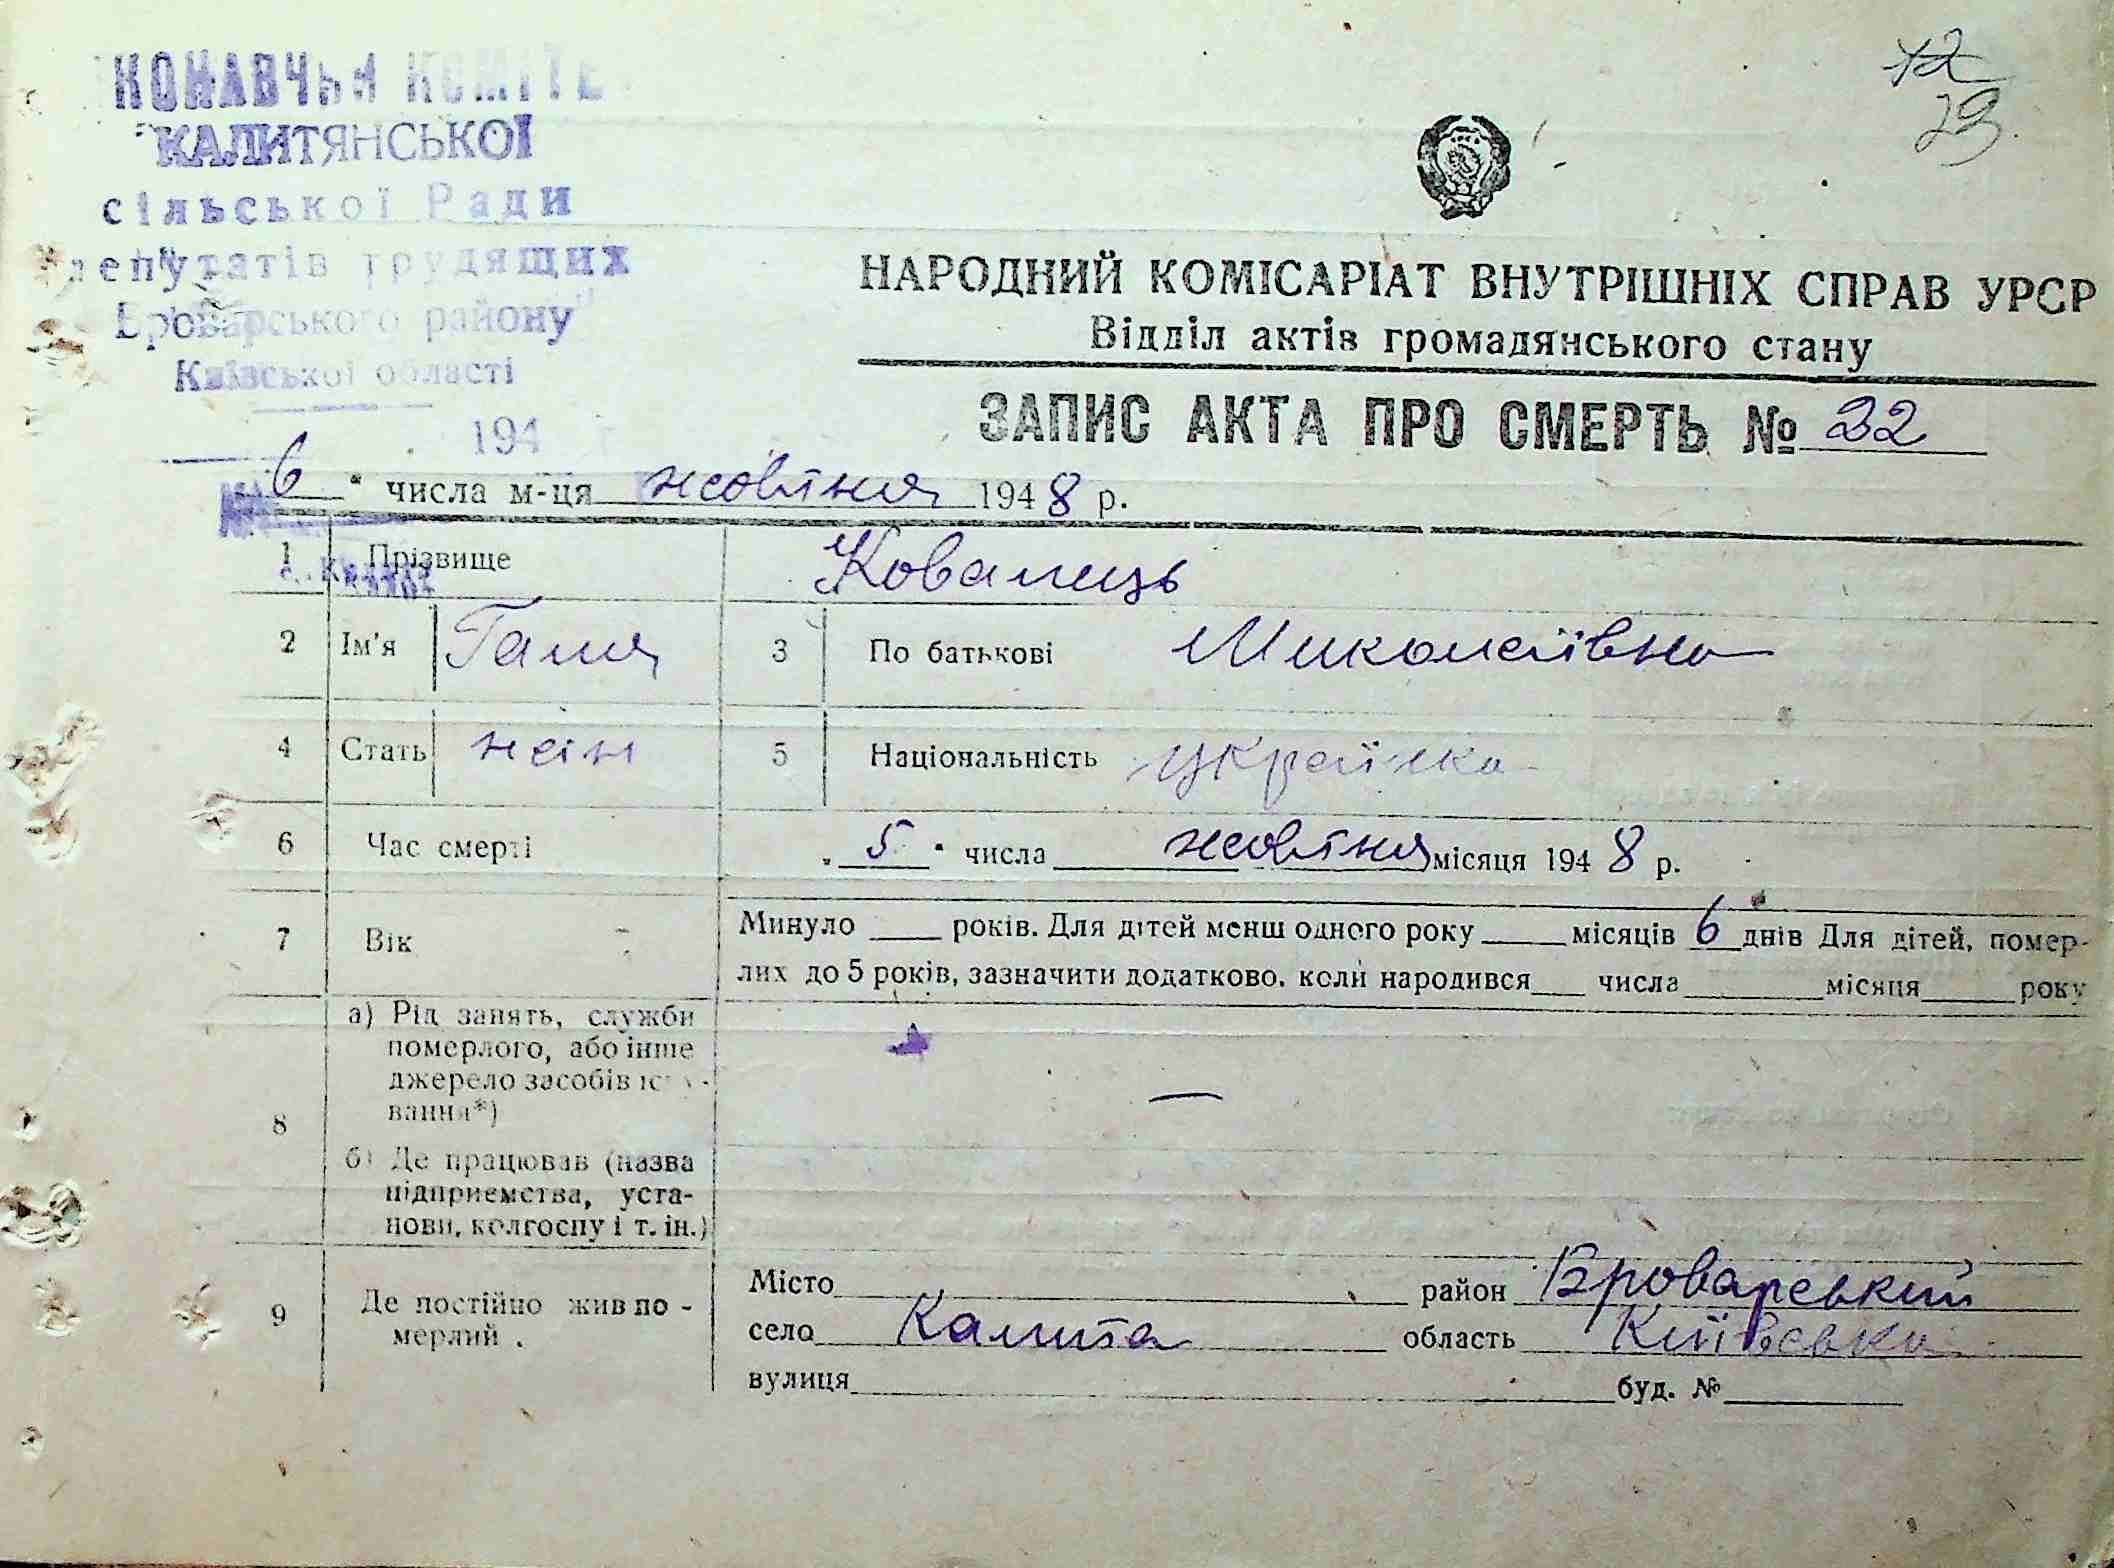 КОНАВЧИЙ КОМІТЕ
КАЛИТЯНСЬКОЇ
сільської Ради
депутатів трудящих
Броварського району
Київської області
194
12
29
НАРОДНИЙ КОМІСАРІАТ ВНУТРІШНІХ СПРАВ УРСР
Відділ актів громадянського стану
ЗАПИС АКТА ПРО СМЕРТЬ № 22
6 " числа м-ця жовтня 1948 р.
1 Прізвище Ковалець
2 Ім'я Галя 3 По батькові Миколаївна
4 Стать жін 5 Національність українка
6 Час смерті „ 5 " числа жовтня місяця 1948 р.
7 Вік Минуло ____ років. Для дітей менш одного року ____ місяців 6 днів Для дітей, помер-
лих до 5 років, зазначити додатково, коли народився ___ числа ______ місяця _____ року
8 а) Рід занять, служби
померлого, або інше
джерело засобів існу-
вання*)
—
б) Де працював (назва
підприємства, уста-
нови, колгоспу і т. ін.)
9 Де постійно жив по-
мерлий .
Місто ______ район Броварський
село Калита область Київська
вулиця ______ буд. № ______